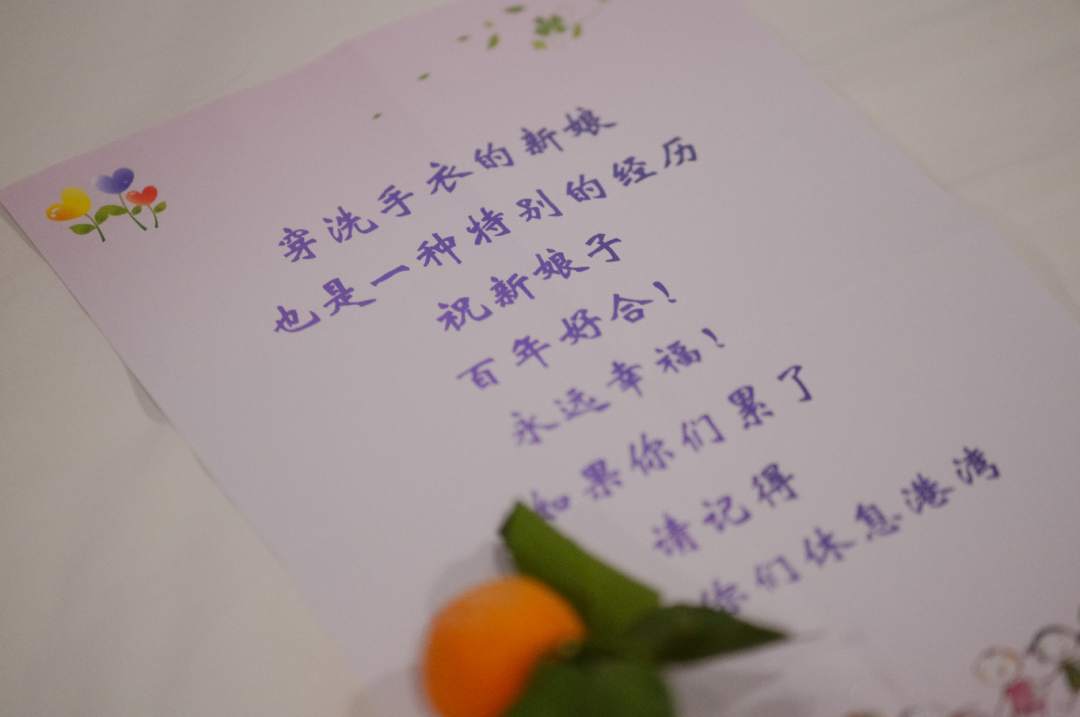 穿洗手衣的新娘
也是一种特别的经历
祝新娘子
百年好合!
永远幸福!
如果你们累了
请记得
你们休息港湾